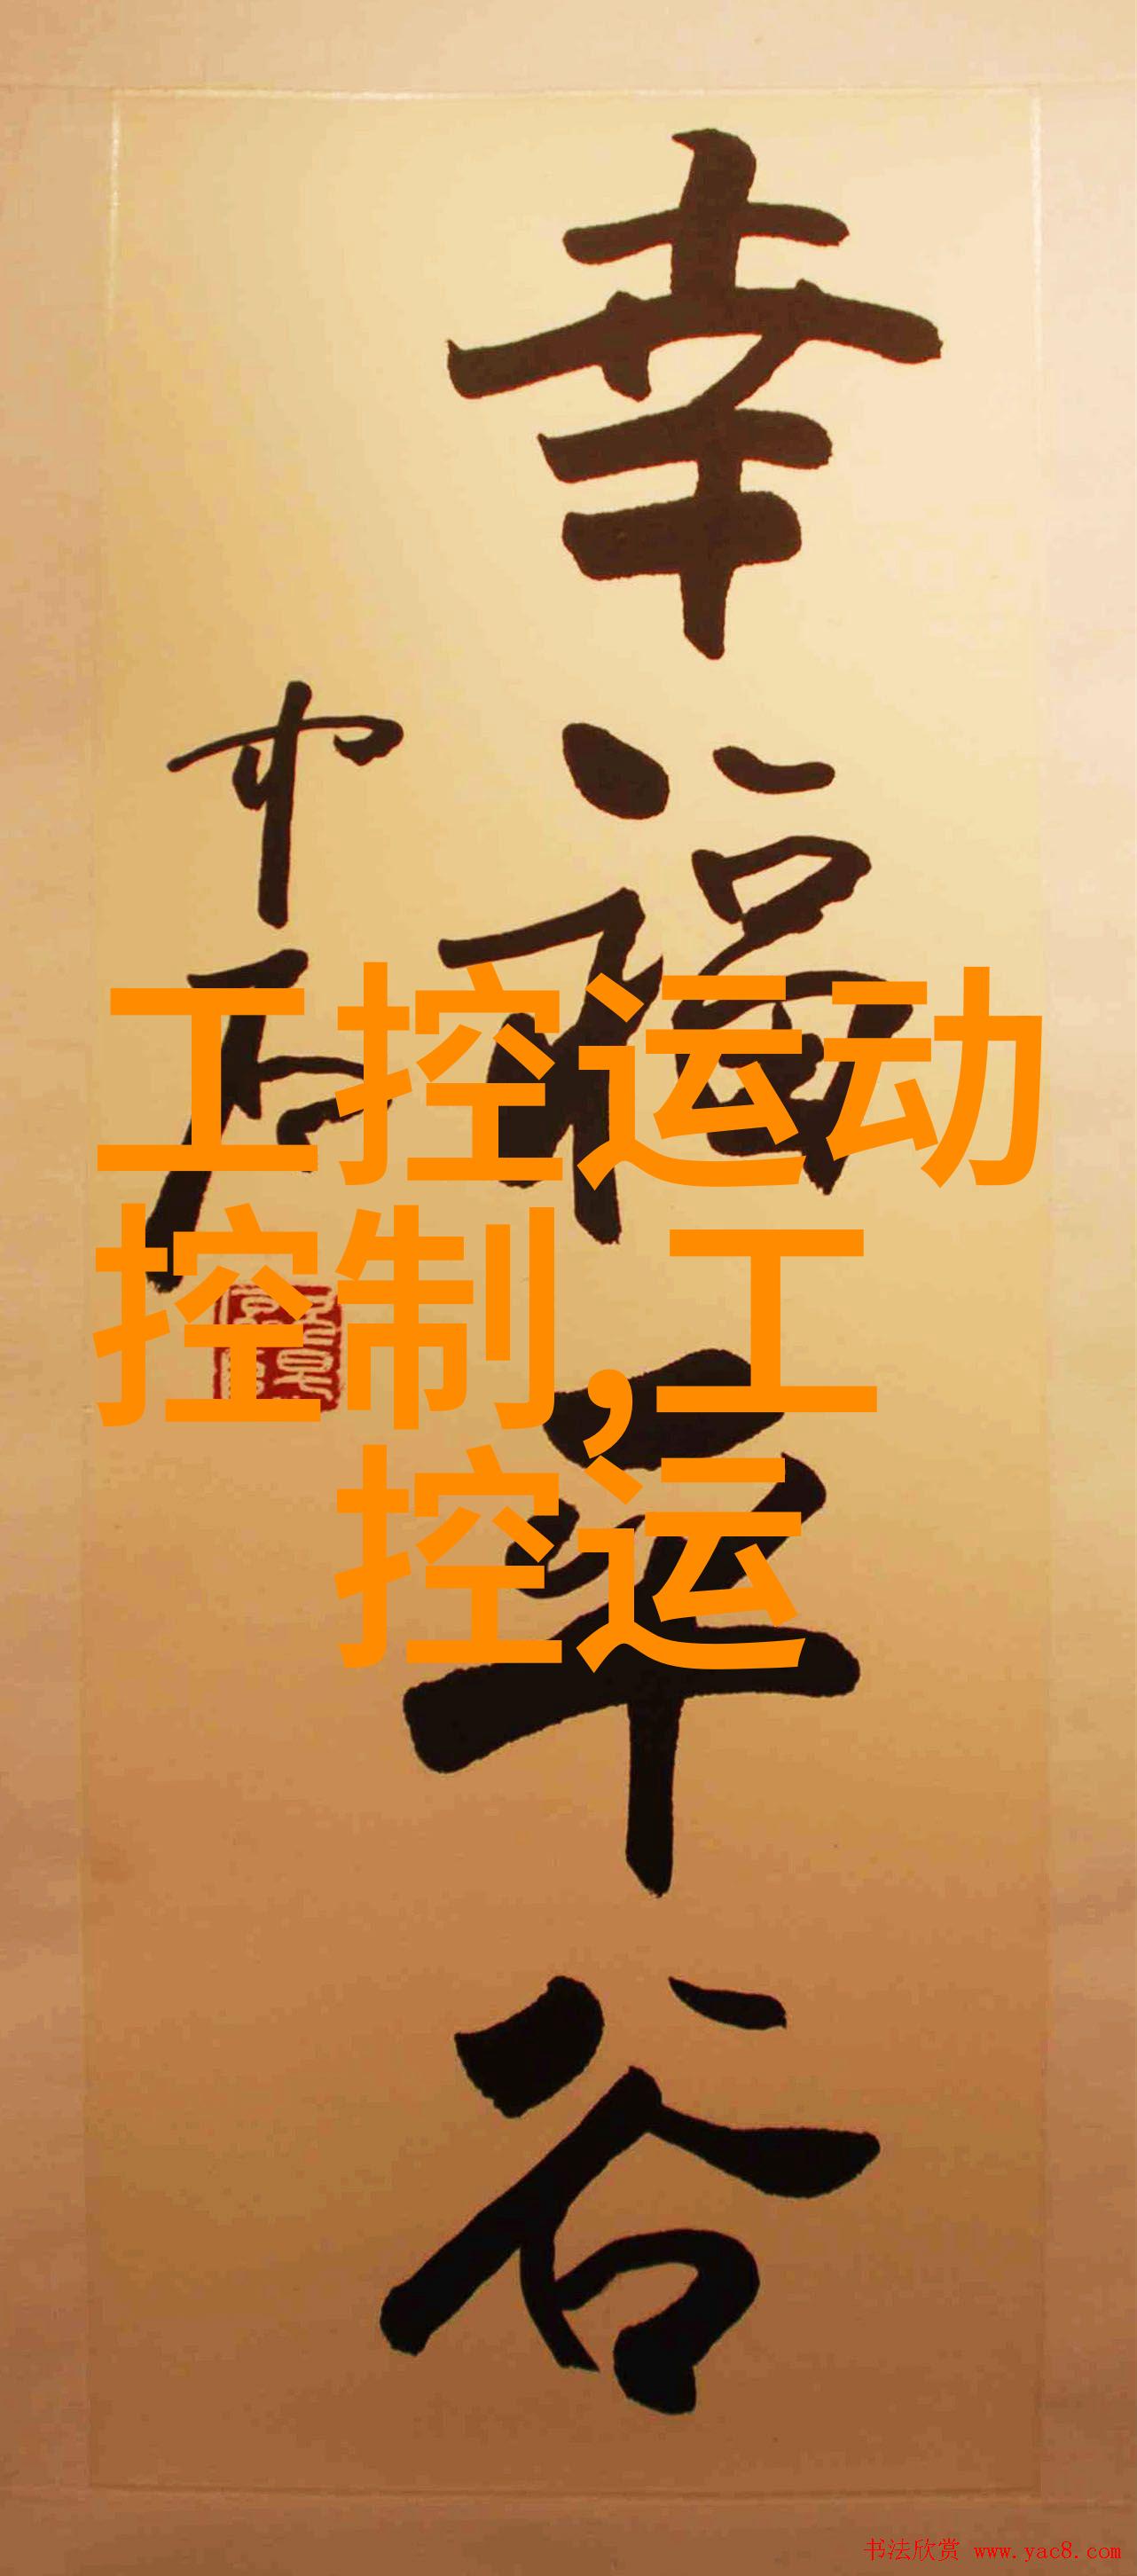 幸福平谷
中石
工控运动
控制,工
控运
书法欣赏 www.yac8.com